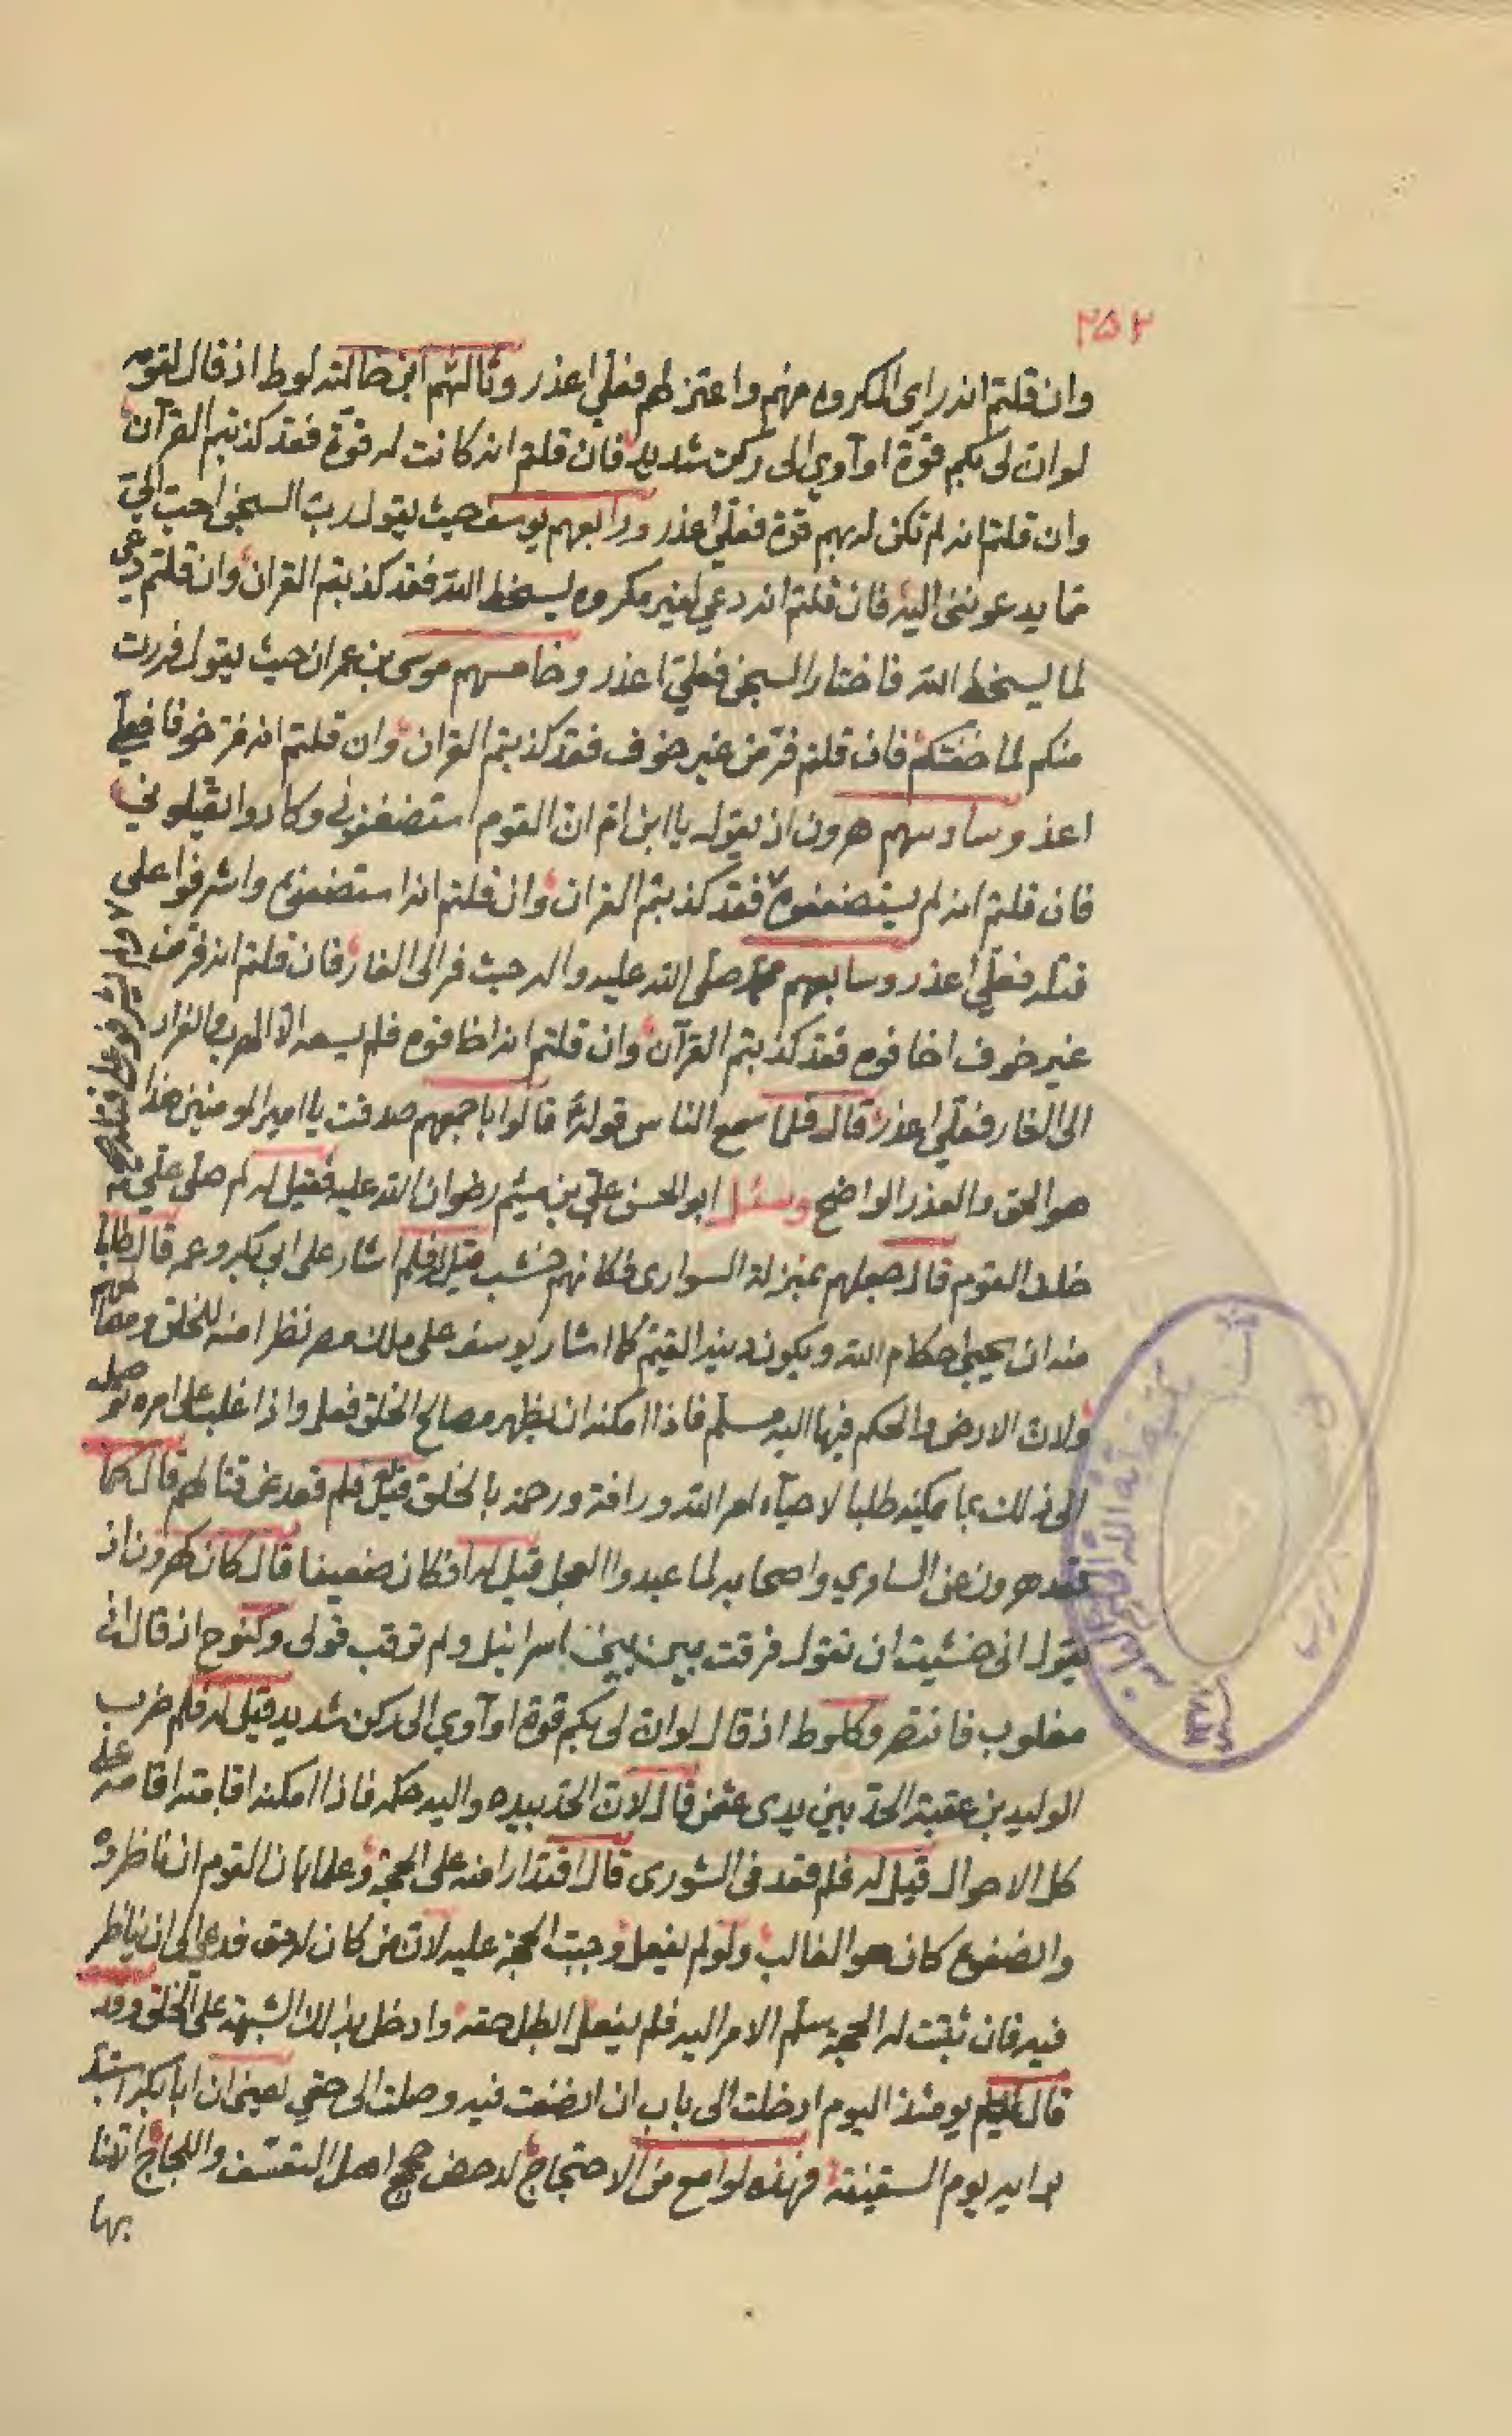 ٢٥٢
وان قلتم انه رای المكروه منهم واعتزلهم فعلي اعذر وثالثهم ابن خالته لوط اذ قال لقومه
لو ان لی بكم قوة او آوی الی ركن شديد فان قلتم انه كانت له قوة فقد كذبتم القرآن
وان قلتم انه لم تكن له بهم قوة فعلي اعذر ورابعهم يوسف حيث يقول رب السجن احب الي
مما يدعونني اليه فان قلتم انه دعي لغير مكروه يسخط الله فقد كذبتم القران وان قلتم دعی
لما يسخط الله فاختار السجن فعلي اعذر وخامسهم موسی بن عمران حيث يقول ففررت
منكم لما خفتكم فان قلتم فر من غير خوف فقد كذبتم القران وان قلتم انه فر خوفا فعلي
اعذر وسادسهم هرون اذ يقول يا ابن ام ان القوم استضعفوني وكادوا يقتلونني
فان قلتم انه لم يستضعفوه فقد كذبتم القران وان قلتم انه استضعفوه واشرفوا علی
قتله فعلي اعذر وسابعهم محمد صلی الله عليه واله حيث فر الی الغار فان قلتم انه فر من
غير خوف اخافوه فقد كذبتم القرآن وان قلتم انه اخافوه فلم يسعه الا الهرب والفرار
الی الغار فعلي اعذر قال فلما سمع الناس قوله قالوا باجمعهم صدقت يا امير المومنين هذا
هو الحق والعذر الواضح وسئل ابو الحسن علي بن ميثم رضوان الله عليه فقيل له لم صلی علي
خلف القوم قال جعلهم بمنزلة السواری فكانهم خشب قيل فلم اشار علی ابی بكر وعمر قال طلبا
منه ان يحيی احكام الله ويكون دينه القيم كما اشار يوسف علی ملك مصر نظرا منه للخلق
ولان الارض والحكم فيها اليه مسلم فاذا امكنه ان يظهر مصالح الخلق فعل واذا غلب علی امره توصل
الی ذلك بما يمكنه طلبا لاحياء امر الله ورافة ورحمة بالخلق قيل فلم قعد عن قتالهم قال كما
قعد هرون عن السامري واصحابه لما عبدوا العجل قيل له افكان ضعيفا قال كان كهرون اذ
يقول انی خشيت ان تقول فرقت بين بنی اسرائيل ولم ترقب قولی وكنوح اذ قال انی
مغلوب فانتصر وكلوط اذ قال لو ان لی بكم قوة او آوي الی ركن شديد قيل له فلم ضرب
الوليد بن عقبة الحد بين يدی عثمن قال لان الحد بيده واليه حكمه فاذا امكنه اقامته اقامه علی
كل الاحوال قيل له فلم قعد فی الشوری قال اقتدارا منه علی الحجة وعلما بان القوم ان ناظروه
وانصفوه كان هو الغالب ولو لم يفعل وجبت الحجة عليه لان من كان له حق فدعی الی ان يناظر
فيه فان ثبتت له الحجة سلم الامر اليه فلم يفعل ابطل حقه وادخل بذلك الشبهة علی الخلق وقد
قال يومئذ اليوم ادخلت الی باب ان انصفت فيه وصلت الی حقي يعنی ان ابا بكر استبد
برايه يوم السقيفة فهذه لوامع من الاحتجاج لدحض حجج اهل التعسف واللجاج اتينا
بها